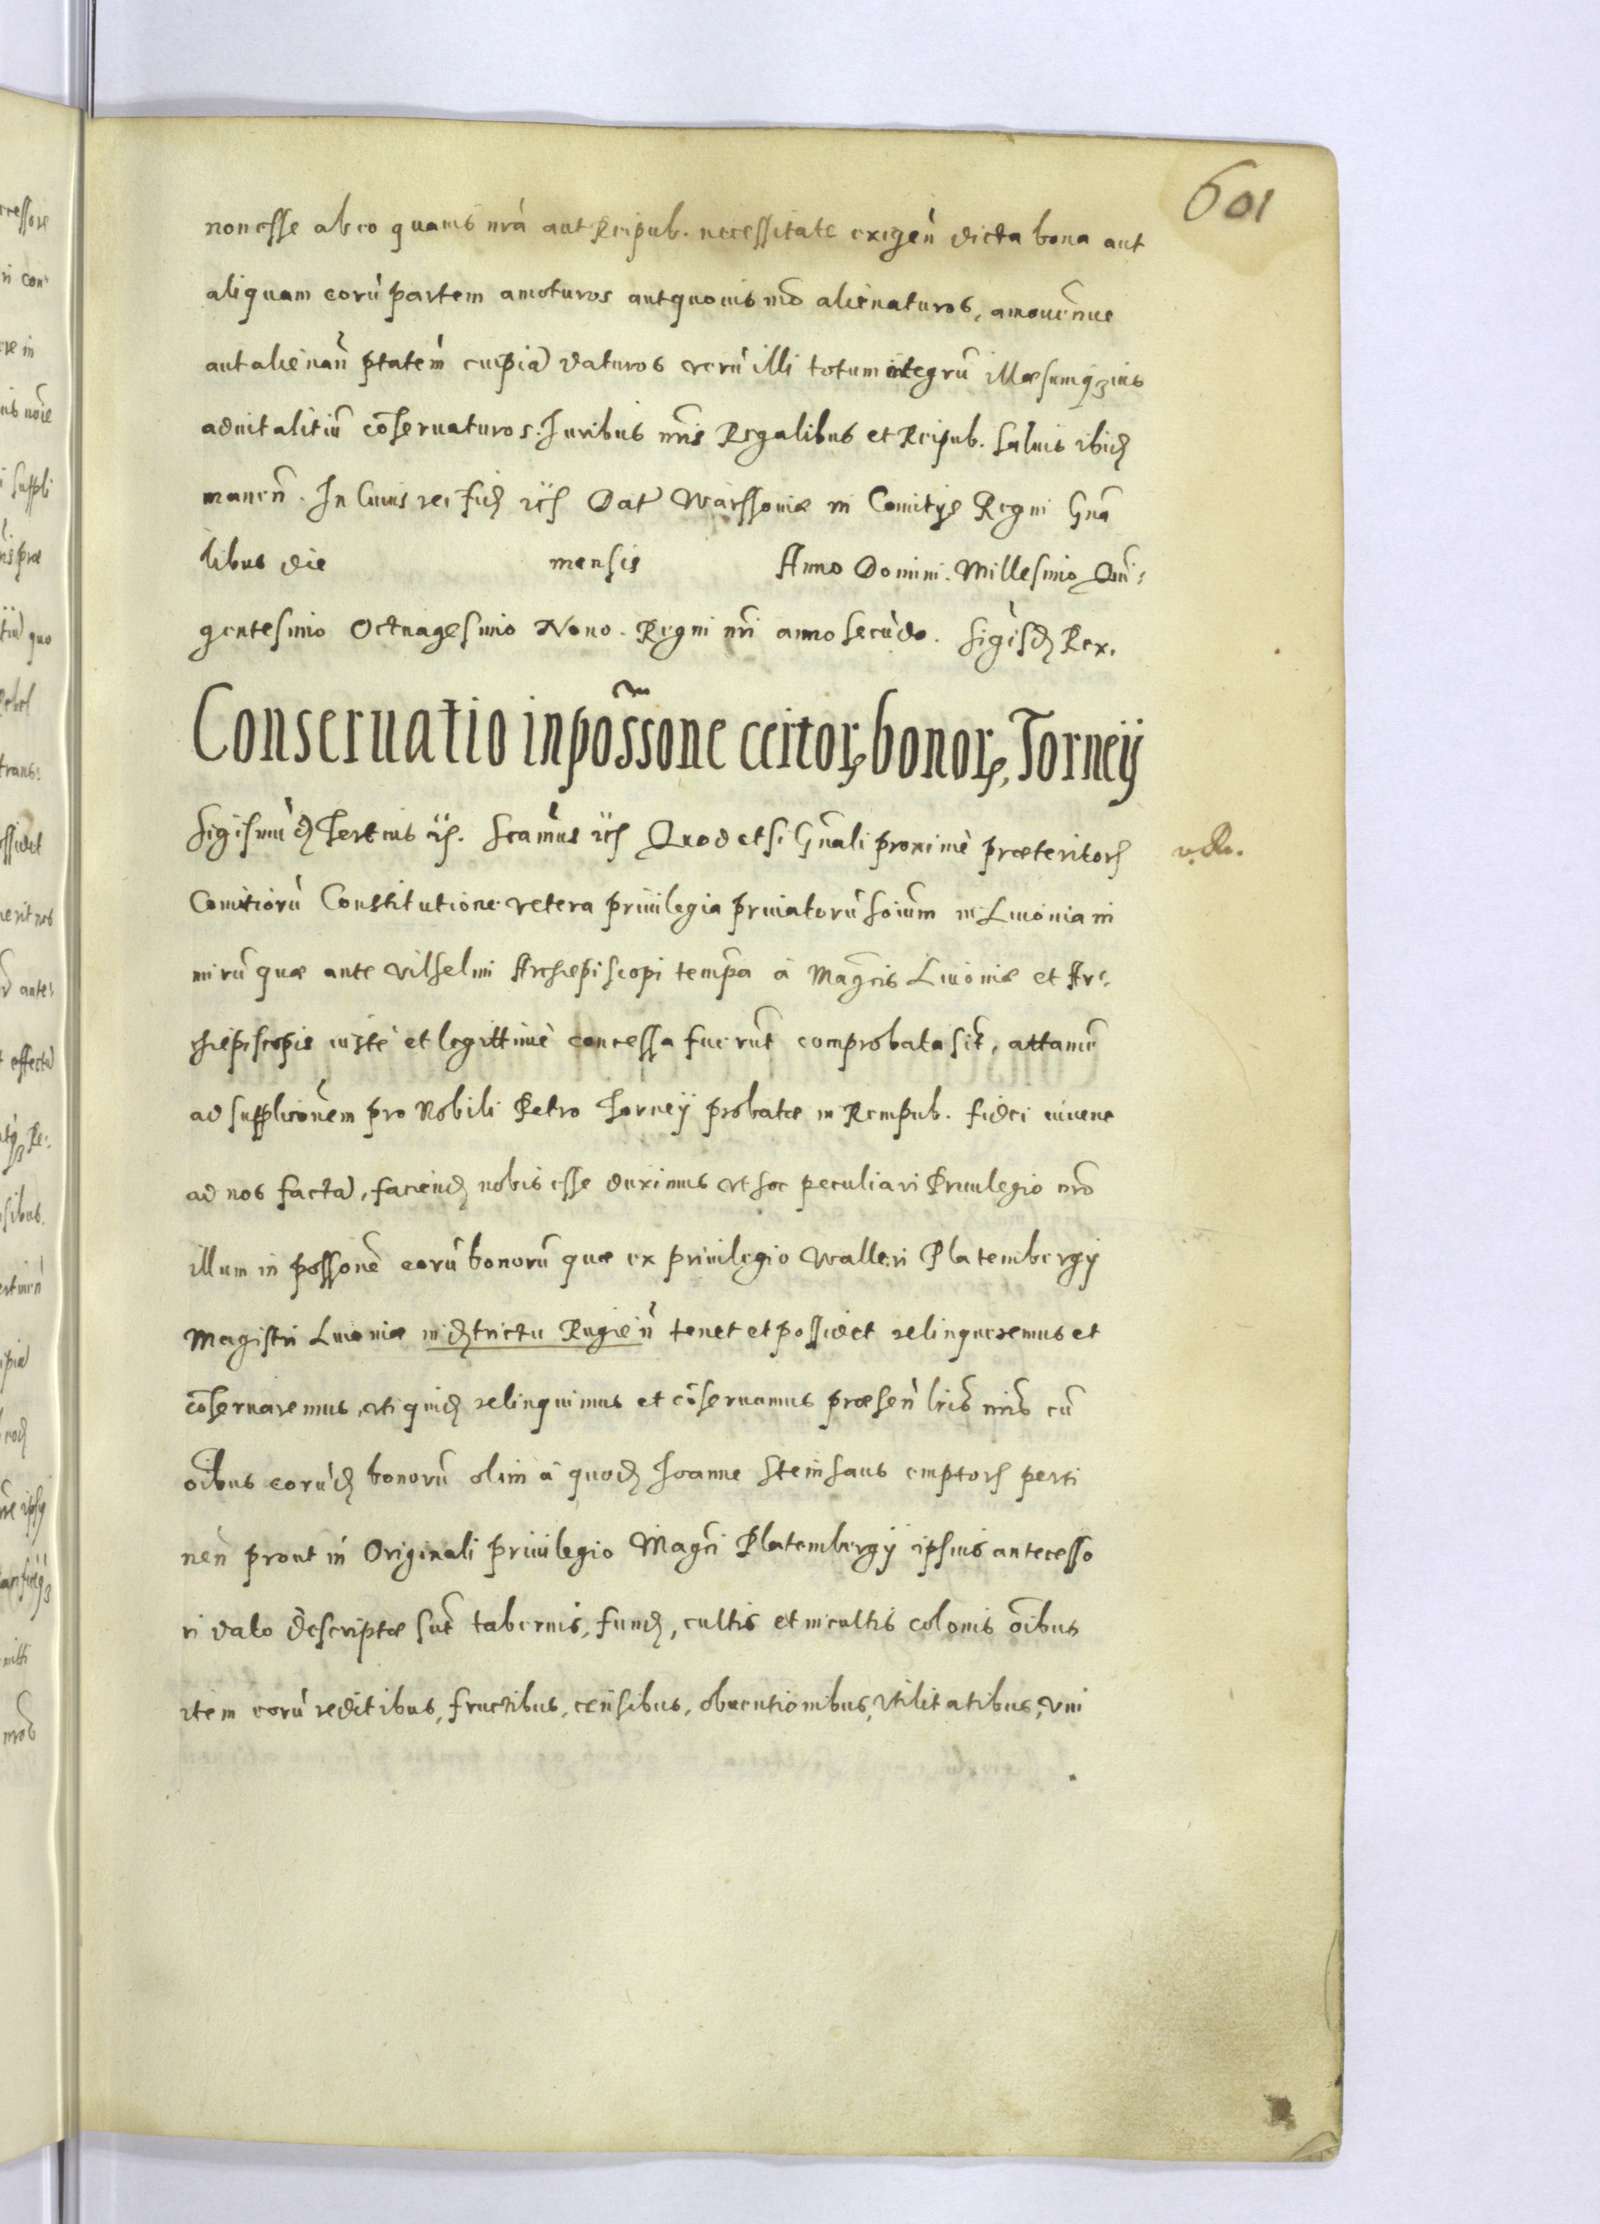 601
non esse ab eo quauis nrà aut Reipub. necessitate exigeǹ dicta bona aut
aliquam corù partem amoturos aut quouis mõ alienaturos, amouẽnue
aut alienañ ptatem̀ cuipiã daturos verù illi totum integrũ illæsumq3 ius
aduitalitiũ cõseruaturos. Juribus nris Regalibus et Reipub. Saluis ibid
manen̄. In Cuius rei fid Dat Warssouiæ in Comitijs Regni Gnã
libus die mensis Anno Domini. Millesimo Quĩ:
gentesimo Octuagesimo Nono. Regni nri anno secùdo. Sigisd Rex.
Conseruatio in pos̃sone certor, bonor, Torneij
Sigismùd Tertius Quod etsi Gnãli proximè præteritor
Comitiorù Constitutione vetera priuilegia priuatorù hoĩum in Liuonia ni
mirũ quæ ante Vilhelmi Archiepiscopi tempa à Magris Liuoniæ et Ar:
chiepiscopis iustè et legittimè concessa fuerũt comprobata sĩt, attamẽ
ad supplicõnem pro Nobili Petro Torneij probatæ in Rempub. fidei iuuene
ad nos factã, faciend nobis esse duximus vt hoc peculiari Priuilegio nrõ
illum in possonẽ eorũ bonorũ quæ ex priuilegio Walteri Platembergij
Magistri Liuoniæ in districtu Rugieǹ tenet et possidet relinqueremus et
cõseruaremus, vti quid relinquimus et cõseruamus præseǹ lrĩs nrĩs cũ
oĩbus eorùd bonorũ olim à quod Joanne Steinhaus emptor perti
neǹ prout in Originali priuilegio Magri Platembergij ipsius antecesso
ri dato descriptæ sũt tabernis, fund, cultis et incultis colonis oĩbus
item eorù reditibus, fructibus, censibus, obuentionibus, vtilitatibus, vni